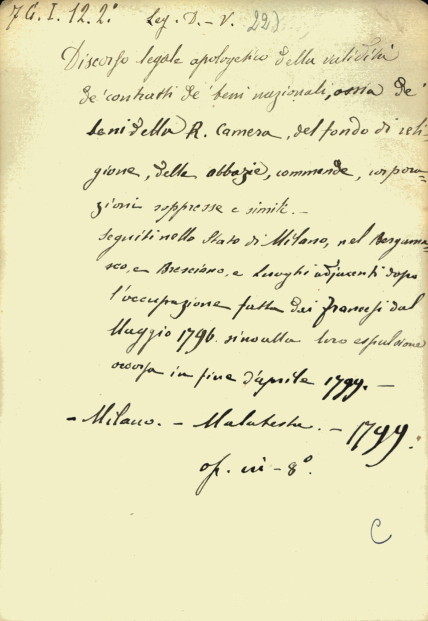 7 G. I. 12. 2º Leg. D. - V. 223
Discorso legale apologetico della validità
de' contratti de' beni nazionali, ossia de'
beni della R. Camera, del fondo di reli-
gione, delle abbazie, commende, corpora=
zioni soppresse e simili. -
seguiti nello Stato di Milano, nel Bergama=
sco, e Bresciano, e luoghi adjacenti dopo
l'occupazione fatta dai francesi dal
Maggio 1796. sino alla loro espulsione
occorsa in fine d'aprile 1799. -
- Milano. - Malatesta. - 1799.
op. in - 8º.
C